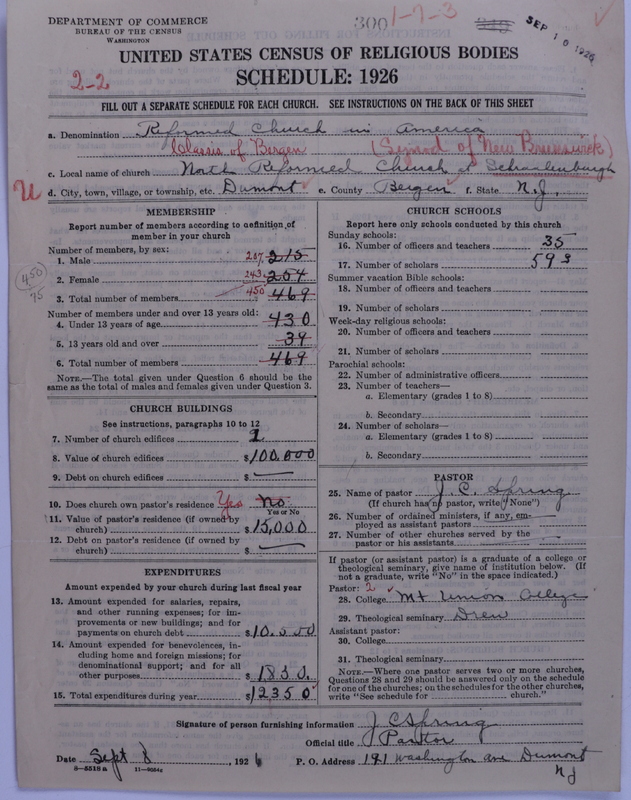 DEPARTMENT OF COMMERCE
BUREAU OF THE CENSUS
WASHINGTON
300
1-7-3
SEP 10 1926
UNITED STATES CENSUS OF RELIGIOUS BODIES
SCHEDULE: 1926
2-2
FILL OUT A SEPARATE SCHEDULE FOR EACH CHURCH. SEE INSTRUCTIONS ON THE BACK OF THIS SHEET
a. Denomination Reformed Church in America
Classis of Bergen (Synod of New Brunswick)
c. Local name of church North Reformed Church at Schraalenburgh
U d. City, town, village, or township, etc. Dumont e. County Bergen f. State N. J.
MEMBERSHIP
Report number of members according to definition of
member in your church
Number of members, by sex:
1. Male 207 215
2. Female 243 254
3. Total number of members 450 469
450
75
Number of members under and over 13 years old:
4. Under 13 years of age 430
5. 13 years old and over 39
6. Total number of members 469
NOTE.—The total given under Question 6 should be the
same as the total of males and females given under Question 3.
CHURCH BUILDINGS
See instructions, paragraphs 10 to 12
7. Number of church edifices
8. Value of church edifices $100,000
9. Debt on church edifices $ —
10. Does church own pastor's residence Yes No
Yes or No
11. Value of pastor's residence (if owned by
church) $15,000
12. Debt on pastor's residence (if owned by
church) $ —
EXPENDITURES
Amount expended by your church during last fiscal year
13. Amount expended for salaries, repairs,
and other running expenses; for im-
provements or new buildings; and for
payments on church debt $10,500
14. Amount expended for benevolences, in-
cluding home and foreign missions; for
denominational support; and for all
other purposes $1850.
15. Total expenditures during year $12350
CHURCH SCHOOLS
Report here only schools conducted by this church
Sunday schools:
16. Number of officers and teachers 35
17. Number of scholars 593
Summer vacation Bible schools:
18. Number of officers and teachers
19. Number of scholars
Week-day religious schools:
20. Number of officers and teachers
21. Number of scholars
Parochial schools:
22. Number of administrative officers
23. Number of teachers—
a. Elementary (grades 1 to 8)
b. Secondary
24. Number of scholars—
a. Elementary (grades 1 to 8)
b. Secondary
PASTOR
25. Name of pastor J. C. Spring
(If church has no pastor, write "None")
26. Number of ordained ministers, if any, em-
ployed as assistant pastors
27. Number of other churches served by the
pastor or his assistants
If pastor (or assistant pastor) is a graduate of a college or
theological seminary, give name of institution below. (If
not a graduate, write "No" in the space indicated.)
Pastor: 2
28. College Mt Union College
29. Theological seminary Drew
Assistant pastor:
30. College
31. Theological seminary
NOTE.—Where one pastor serves two or more churches,
Questions 28 and 29 should be answered only on the schedule
for one of the churches; on the schedules for the other churches,
write "See schedule for church."
Signature of person furnishing information J C Spring
Official title Pastor
Date Sept 8, 1926 P. O. Address 191 Washington Ave Dumont
N J
8—5518a 11—9024c